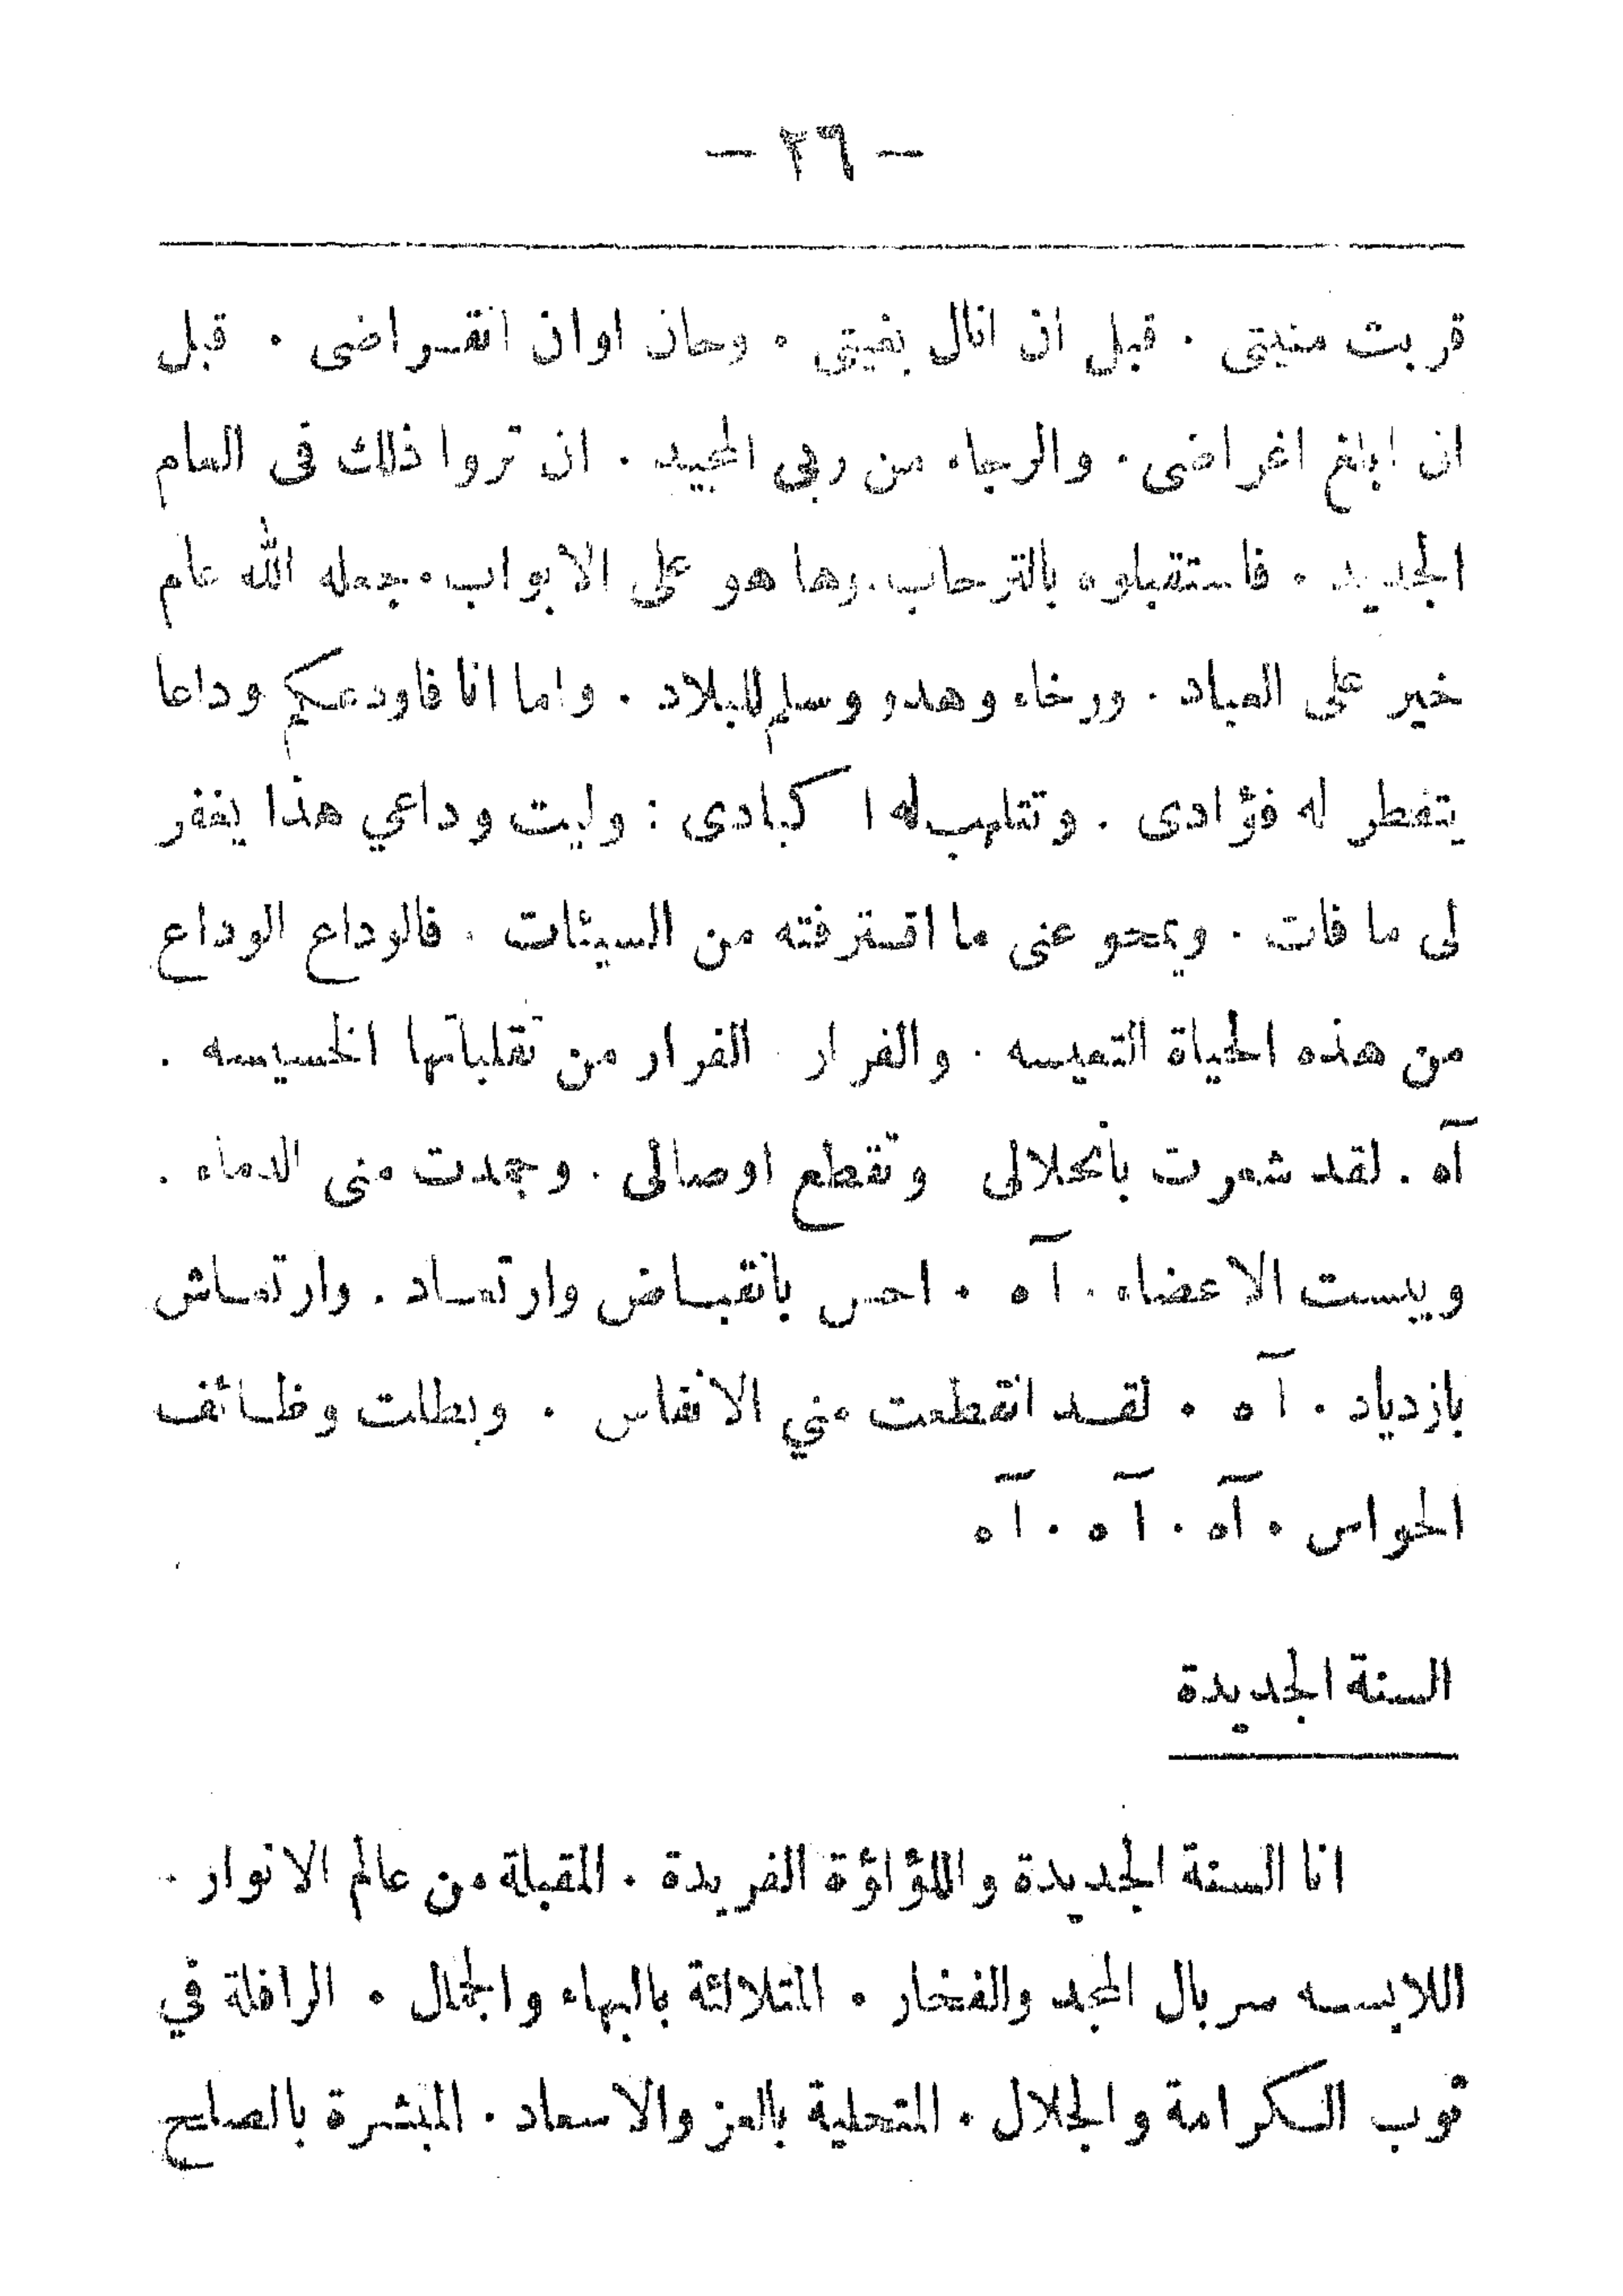 — ٢٦ —
قربت منيتى . قبل أن انال بغيتى . وحان اوان انقراضى . قبل
ان ابلغ اغراضى . والرجاء من ربى المجيد . ان تروا ذلك فى العام
الجديد . فاستقبلوه بالترحاب . وها هو على الابواب . جعله الله عام
خير على العباد . ورخاء وهدو وسلم للبلاد . واما انا فاودعكم وداعا
يتفطر له فؤادى . وتتلهب له اكبادى : وليت وداعي هذا يغفر
لى ما فات . ويمحو عنى ما اقترفته من السيئات . فالوداع الوداع
من هذه الحياة التعيسه . والفرار الفرار من تقلباتها الخسيسه .
آه . لقد شعرت بانحلالى وتقطع اوصالى . وجمدت منى الدماء .
ويبست الاعضاء . آه . احس بانقباض وارتعاد . وارتعاش
بازدياد . آه . لقد انقطعت مني الانفاس . وبطلت وظائف
الحواس . آه . آه . آه
السنة الجديدة
انا السنة الجديدة واللؤلؤة الفريدة . المقبلة من عالم الانوار .
اللابسه سربال المجد والفخار . المتلائة بالبهاء والجمال . الرافلة في
ثوب الكرامة والجلال . المتحلية بالعز والاسعاد . المبشرة بالصلح